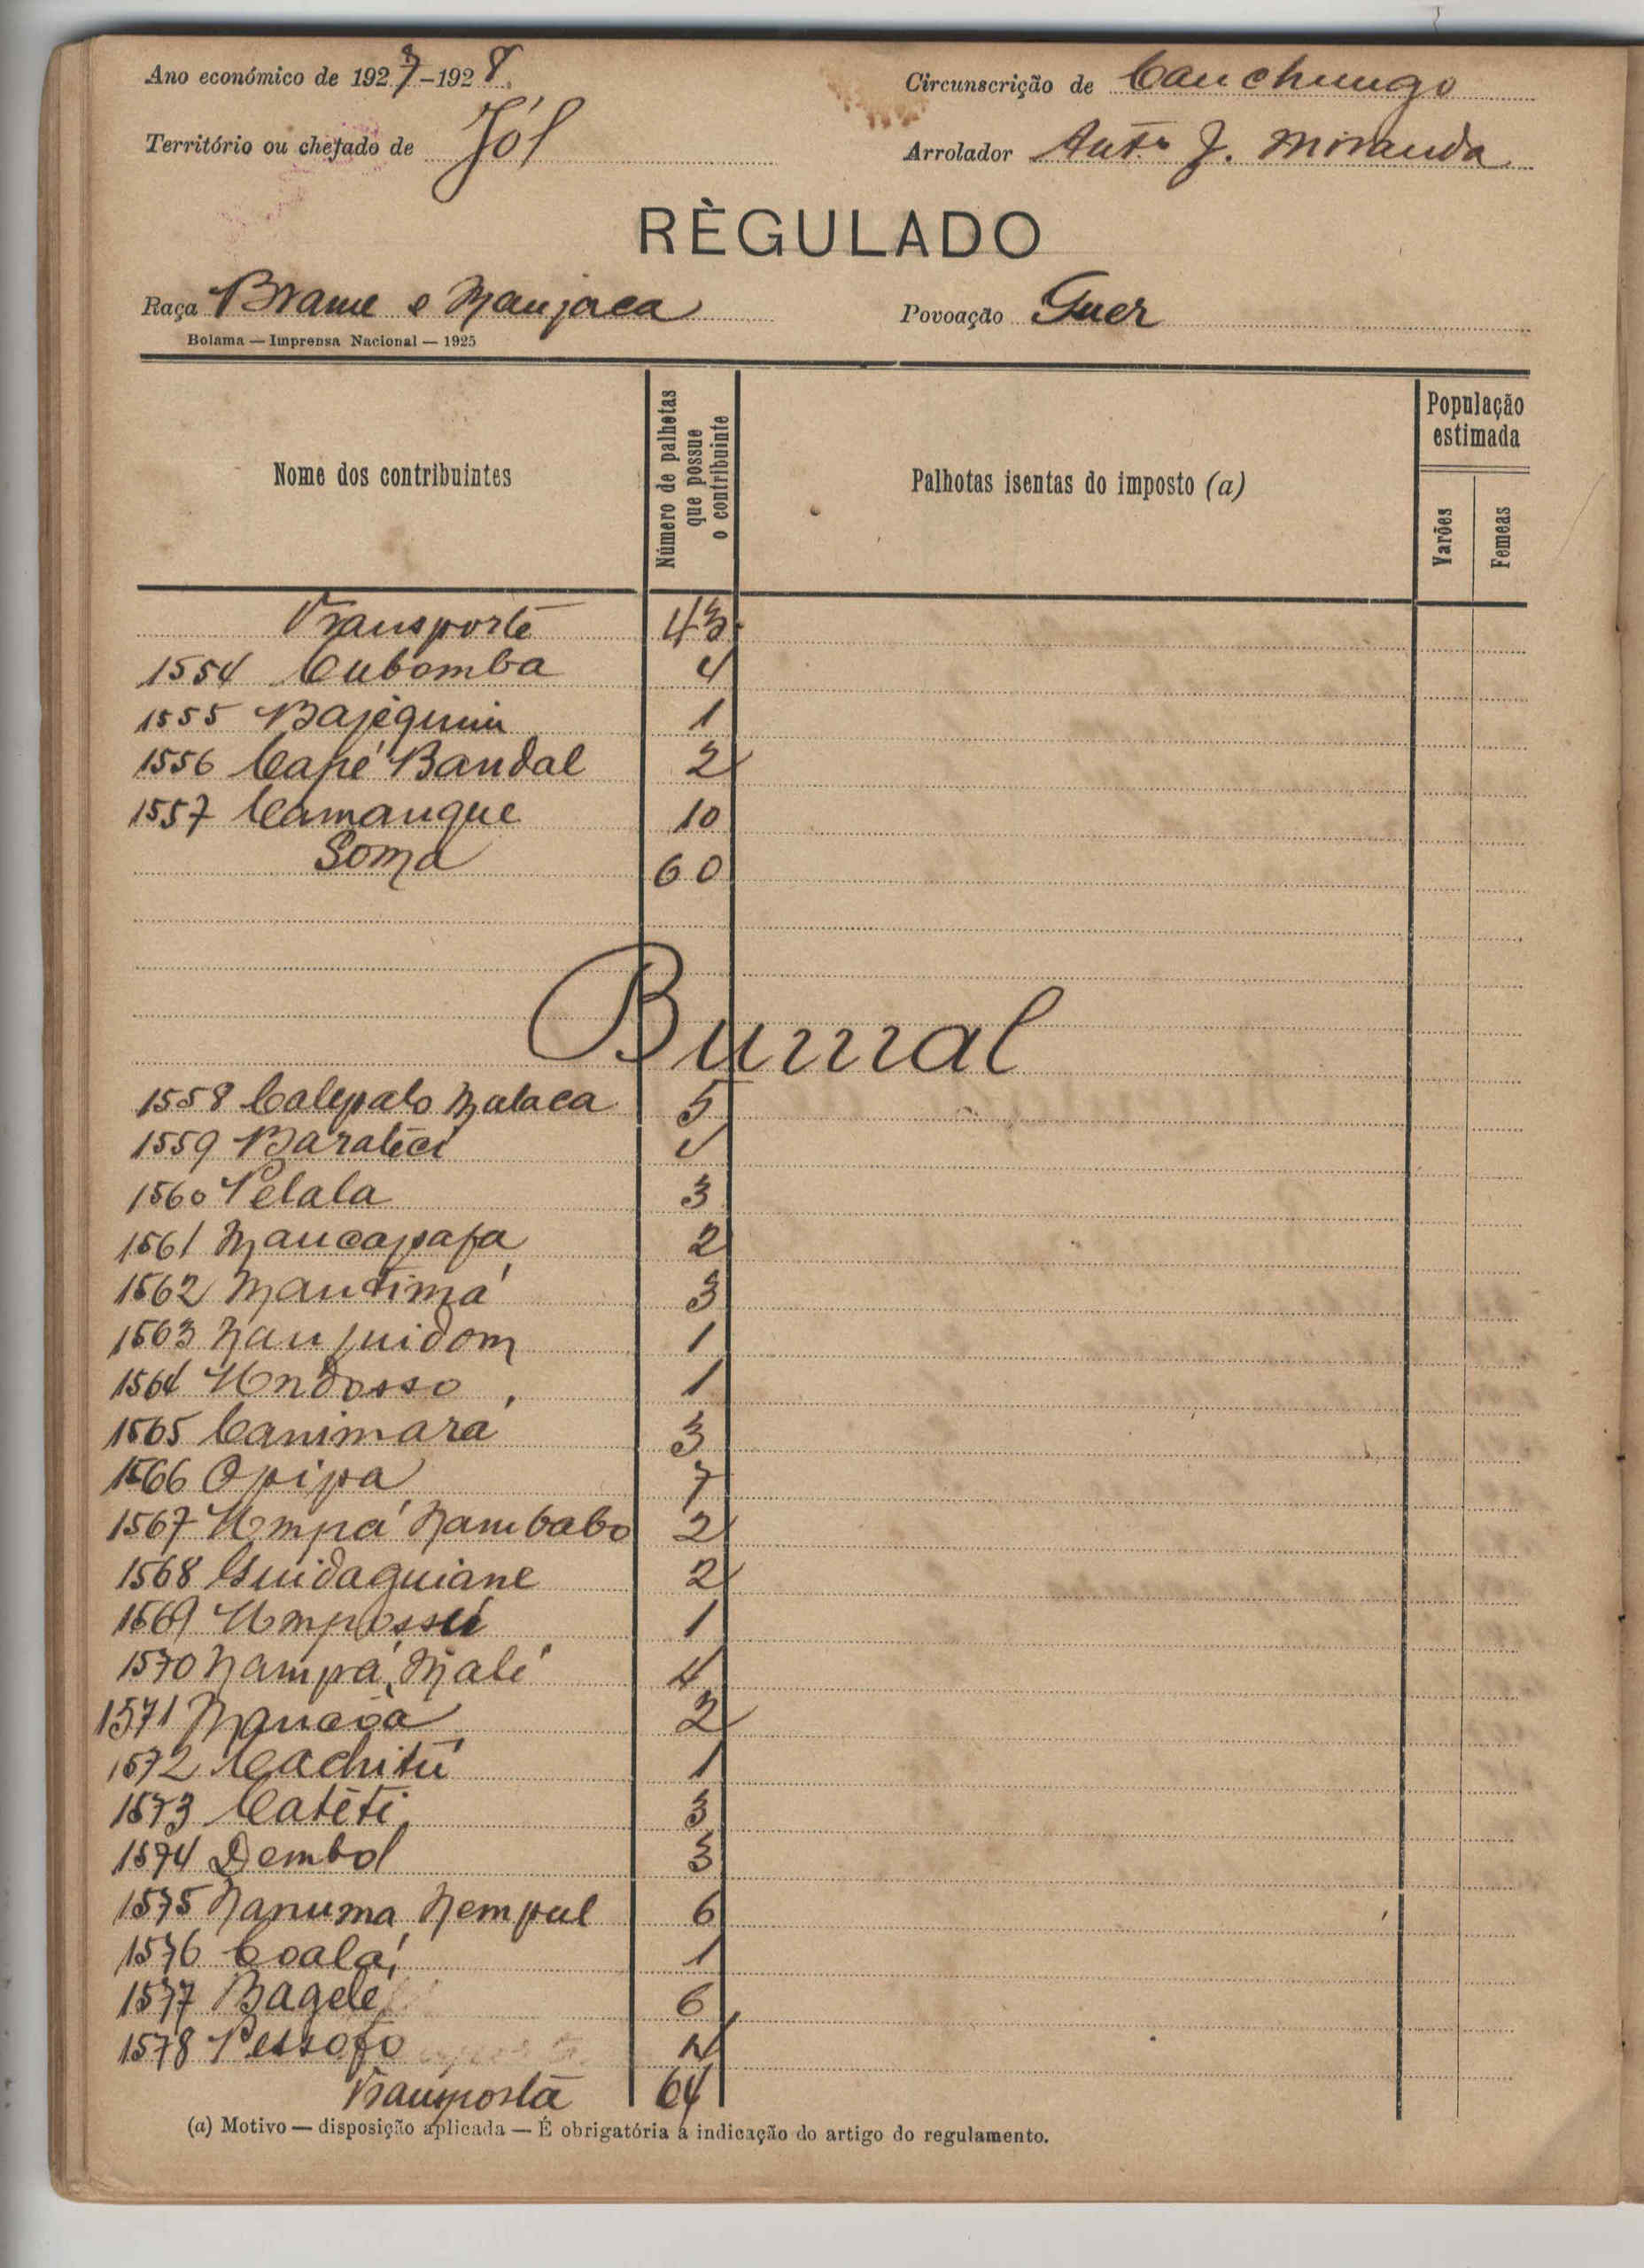 Ano económico de 1927-1928.
Circunscrição de Canchungo
Território ou chefado de Jól
Arrolador Antº J. Miranda
RÈGULADO
Raça Brame e Manjaca
Povoação Guer
Bolama — Imprensa Nacional — 1925
Nome dos contribuintes
Número de palhotas que possue o contribuinte
Palhotas isentas do imposto (a)
População estimada
Varões
Femeas
Transporte 43
1554 Cubomba 4
1555 Bajéquim 1
1556 Capé Bandal 2
1557 Camangue 10
Soma 60
Burnal
1558 Calepalo Malaca 5
1559 Baratéci
1560 Pelala 3
1561 Maucapafa 2
1562 Mautimá 3
1563 Naujuidom 1
1564 Undosso 1
1565 Canimará 3
1566 Opipa 7
1567 Umpá Nambabo 2
1568 Guidaguiane 2
1569 Umpossú 1
1570 Nampá Malé 4
1571 2
1572 Cachitú 1
1573 Catéti 3
1574 Dembol 3
1575 Nanuma Nempul 6
1576 Coalá 1
1577 Bagele 6
1578 Pessofo
Transporta 64
(a) Motivo — disposição aplicada — É obrigatória a indicação do artigo do regulamento.